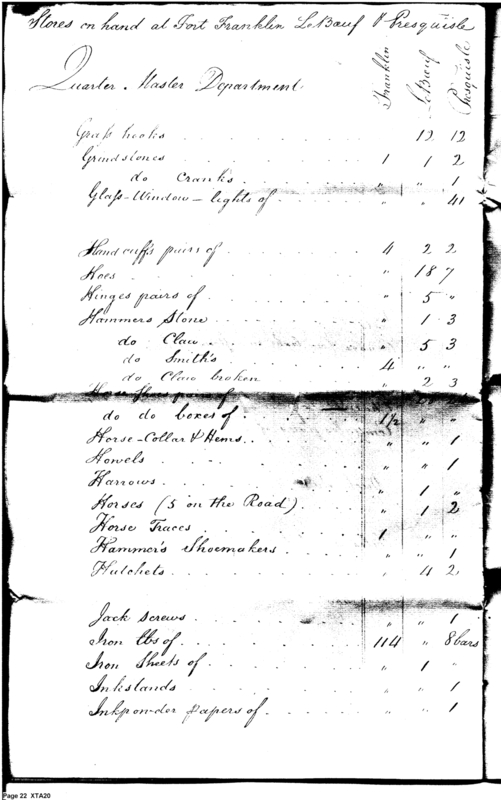 Stores on hand at Fort Franklin LeBœuf & Presquisle
Quarter. Master Department
Franklin LeBœuf Presquisle
Grass hooks 12 12
Grindstones 1 1 2
do Cranks " " 1
Glass-Window-lights of " " 41
Handcuffs pairs of 4 2 2
Hoes " 18 7
Hinges pairs of " 5 "
Hammers Stone " 1 3
do Claw " 5 3
do Smith's 4 " "
do Claw broken " 2 3
Horse Shoes of
do do boxes of 1½ " "
Horse-Collar & Hems " " 1
Howels " " 1
Harrows " 1 "
Horses (5 on the Road) " 1 2
Horse Traces 1 " "
Hammers Shoemakers " " 1
Hatchets " 4 2
Jack screws " " 1
Iron lbs of 114 " 8 bars
Iron Sheets of " 1 "
Inkstands " " 1
Inkpowder papers of " " 1
Page 22 XTA20